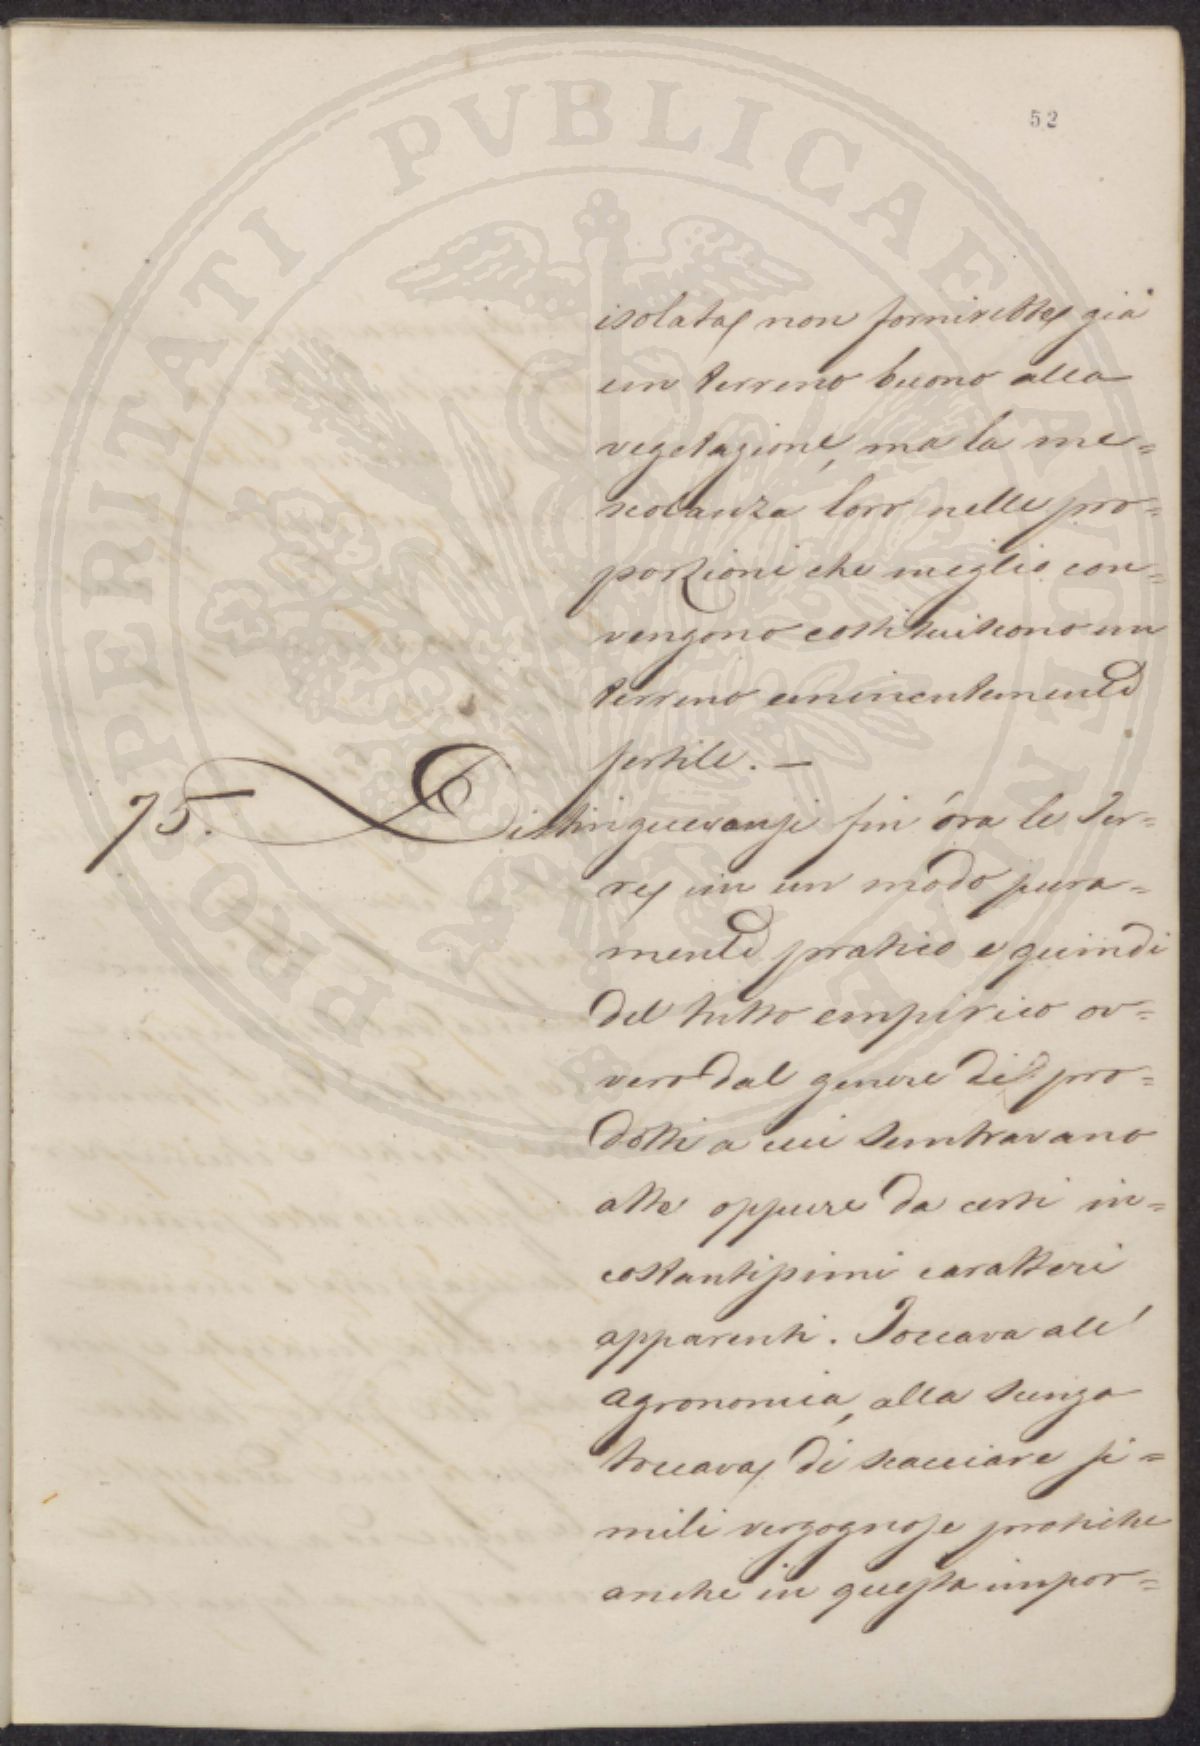 52
isolata, non fornirebbe già
un terreno buono alla
vegetazione, ma la me=
scolanza loro nelle pro=
porzioni che meglio con=
vengono costituiscono un
terreno eminentemente
fertile. —
75. Distinguevansi fin'ora le Ter=
re, in un modo pura=
mente pratico e quindi
del tutto empirico ov=
vero dal genere di pro=
dotti a cui sembravano
atte oppure da certi in=
costantissimi caratteri
apparenti. Toccava all'
agronomia, alla scienza
toccava, di scacciare si=
mili vergognose pratiche
anche in questa impor=
PROSPERITATI PVBLICAE AVGENDAE